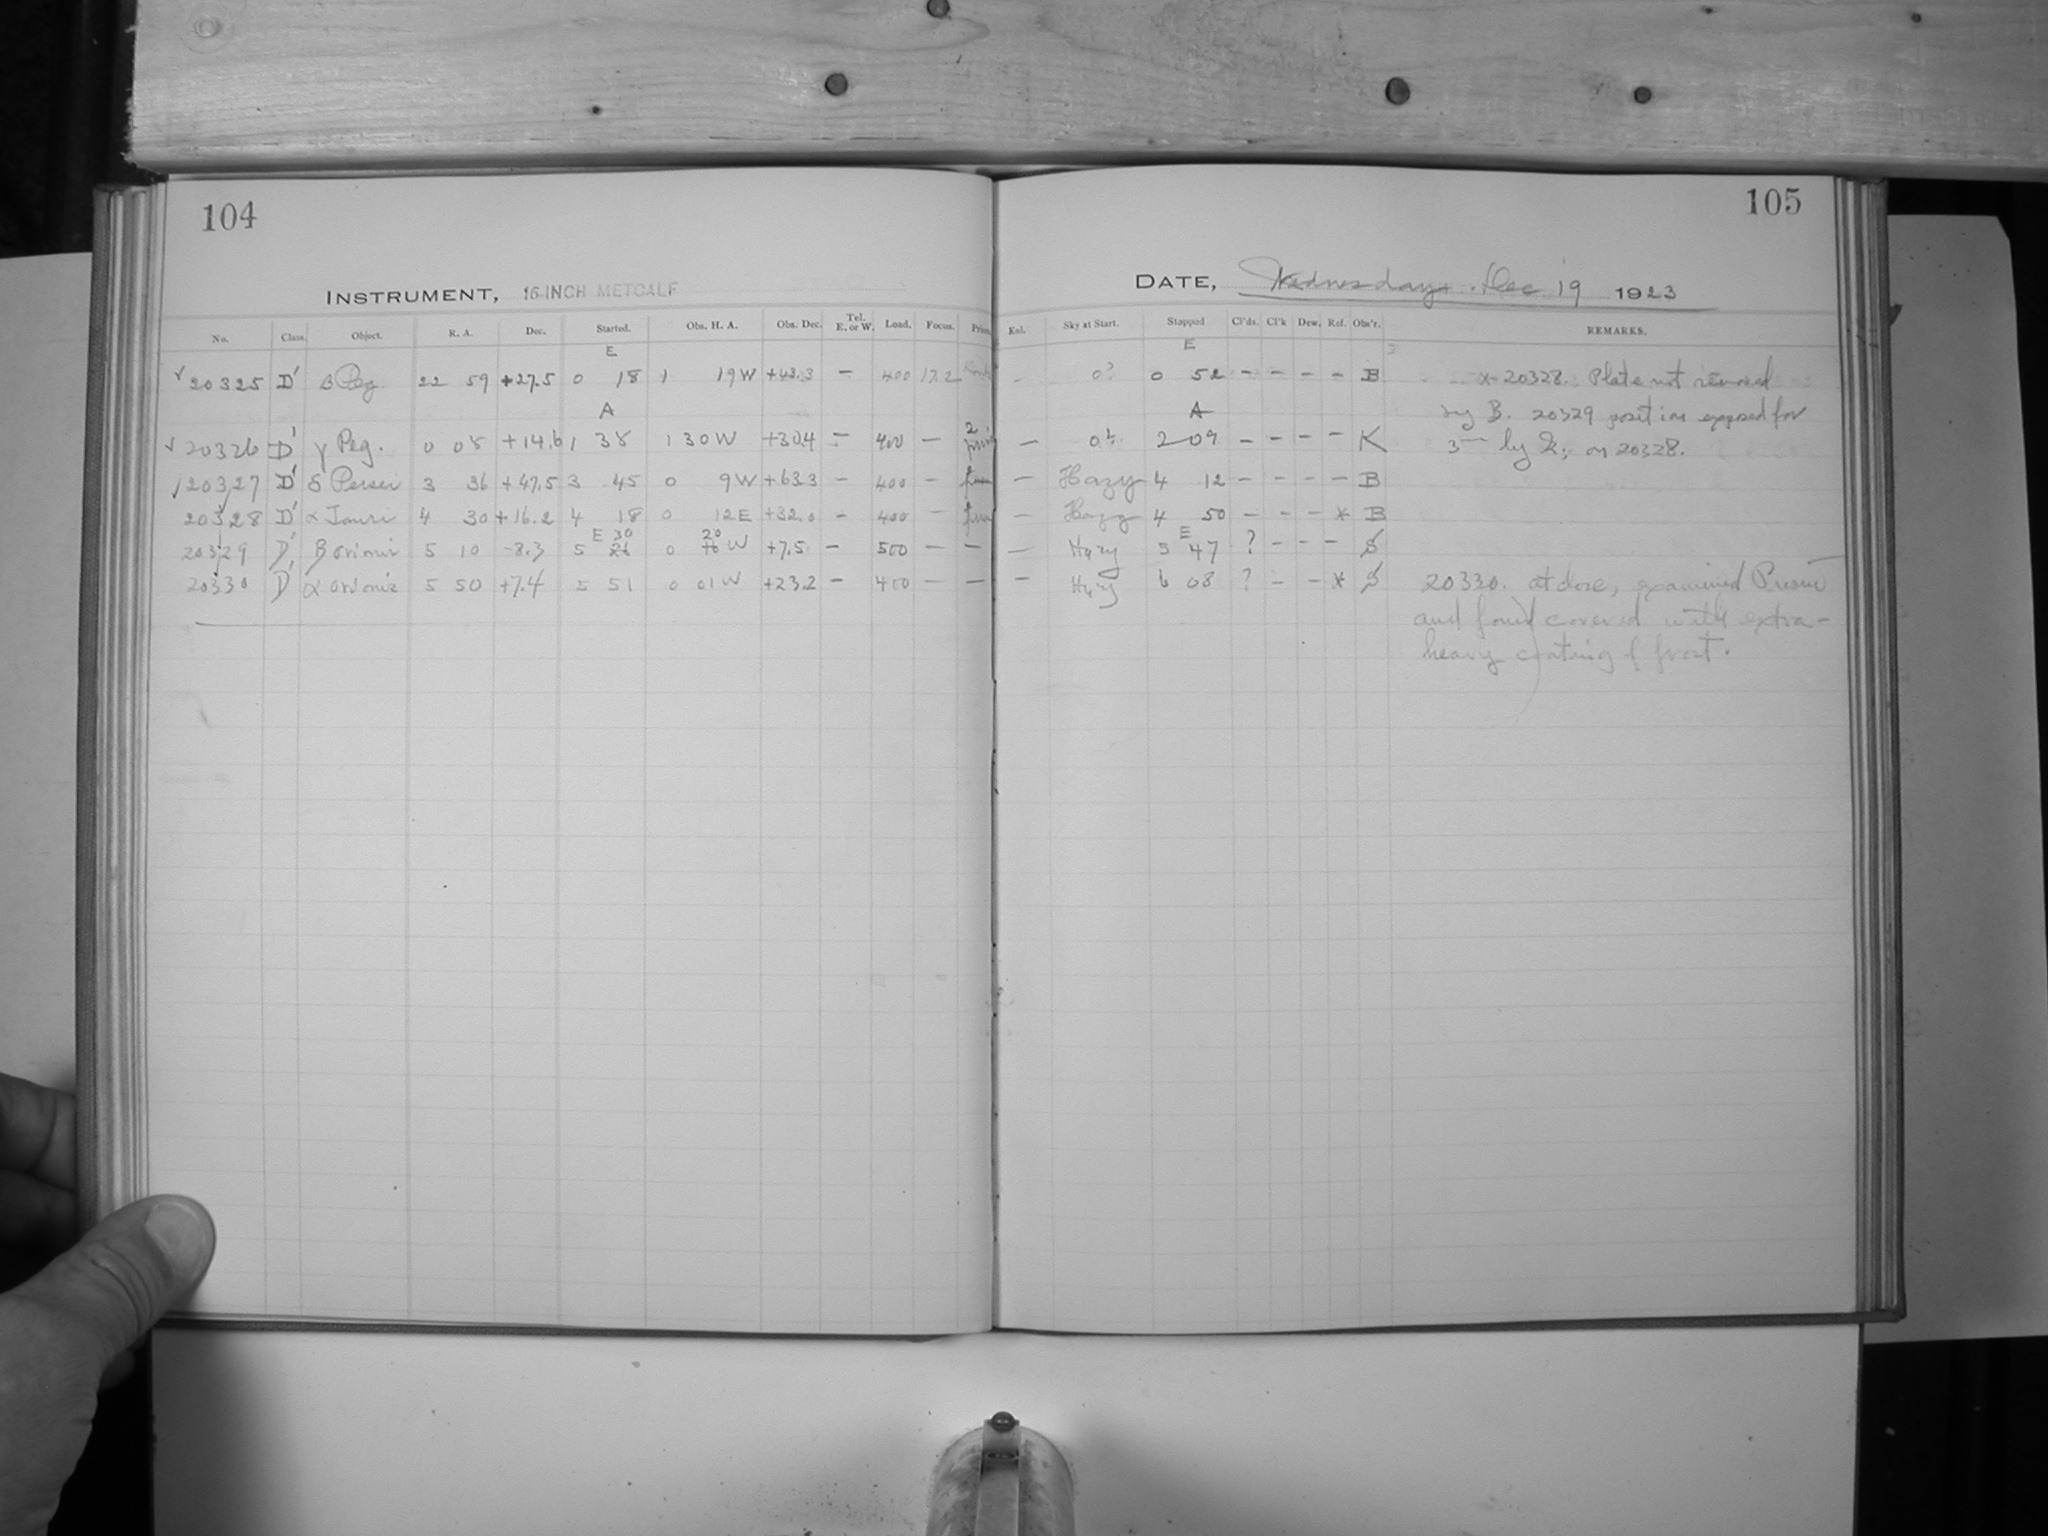 104
105
INSTRUMENT, 16-INCH METCALF
DATE, Wednesday Dec 19 1923
No. Class. Object. R. A. Dec. Started. Obs. H. A. Obs. Dec. Tel. E. or W. Load. Focus. Prism Exl. Sky at Start. Stopped Cl'ds. Cl'k Dew. Ref. Obs'r. REMARKS.
E E
✓ 20325 D' β Peg 22 59 +27.5 0 18 1 19 W +43.3 – 400 17.2 – 0? 0 52 – – – – B x 20328. Plate not removed
A A
by B. 20329 position exposed for
✓ 20326 D' γ Peg. 0 08 +14.6 1 38 1 30 W +30.4 – 400 – 2 – 2 09 – – – – K 3 by on 20328.
✓ 20327 D' δ Persei 3 36 +47.5 3 45 0 9 W +63.3 – 400 – – Hazy 4 12 – – – – B
20328 D' α Tauri 4 30 +16.2 4 18 0 12 E +32.0 – 400 – – Hazy 4 50 – – – * B
E 30 20 E
20329 D' β Orionis 5 10 -8.3 5 0 W +7.5 – 500 – – – Hazy 5 47 ? – – – S
20330 D' α Orionis 5 50 +7.4 5 51 0 01 W +23.2 – 400 – – – Hazy 6 08 ? – – * S 20330. at close, examined Prism
and found covered with extra-
heavy coating of frost.